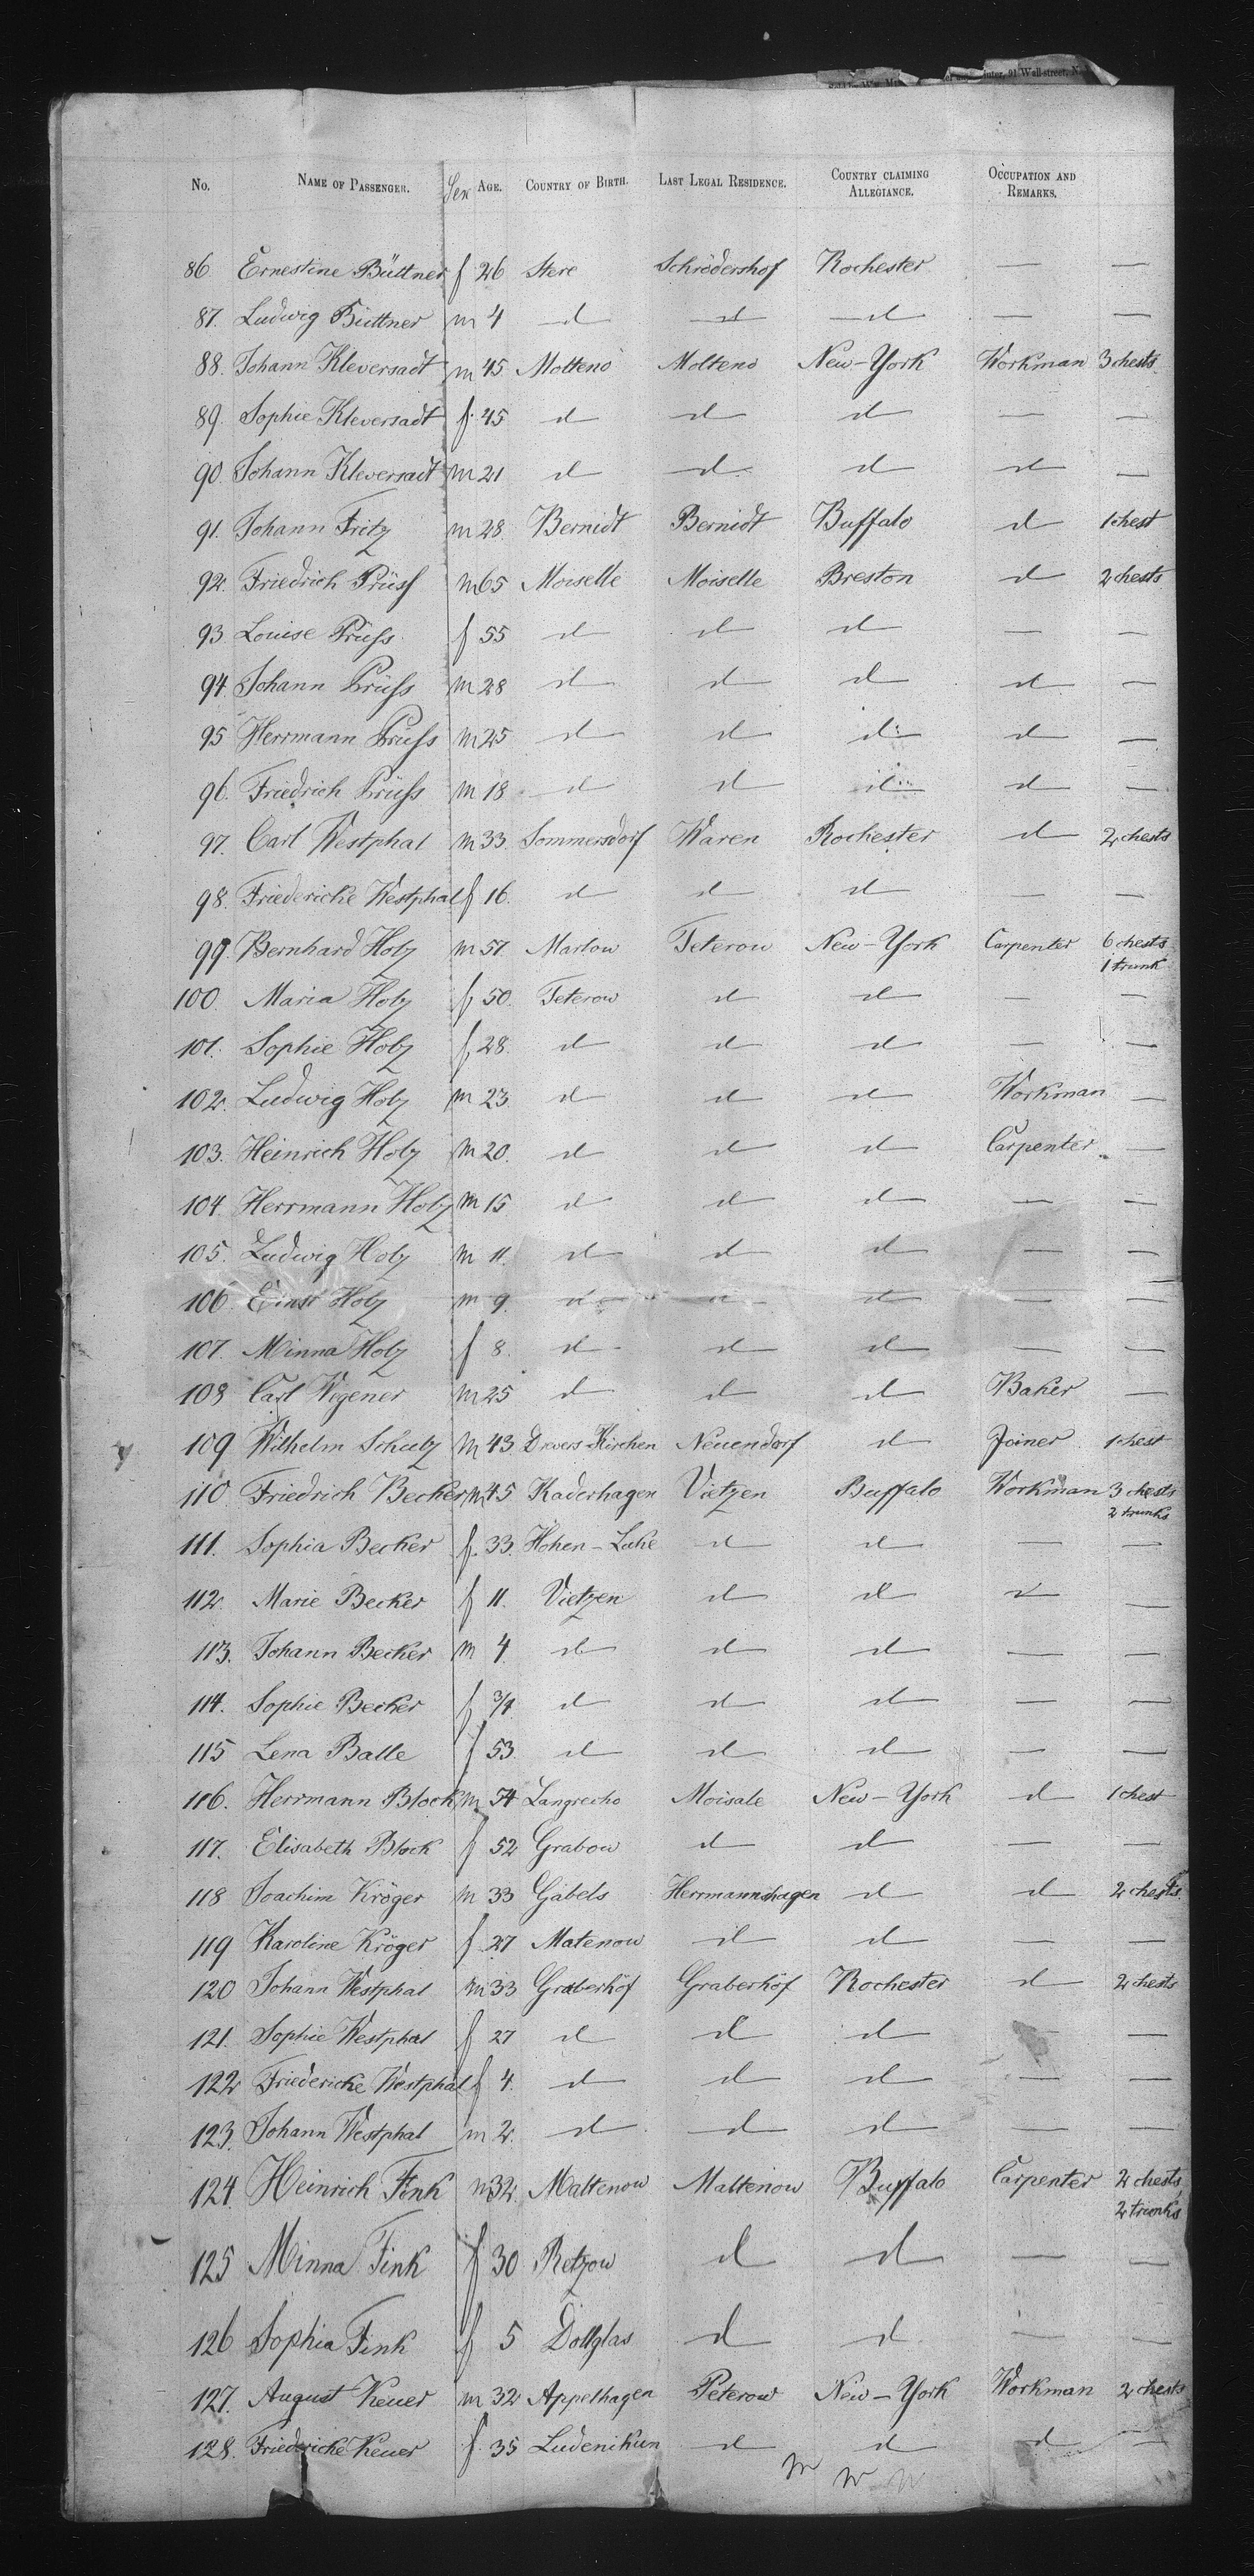 inter, 91 Wall-street, N
No. NAME OF PASSENGER. Sex AGE. COUNTRY OF BIRTH. LAST LEGAL RESIDENCE. COUNTRY CLAIMING ALLEGIANCE. OCCUPATION AND REMARKS.
86 Ernestine Büttner f 26 Stere Schrödershof Rochester — —
87. Ludwig Büttner m 4 d d d — —
88. Johann Kleversadt m 45 Molteno Molteno New-York Workman 3 chests
89. Sophie Kleversadt f. 45 d d d — —
90. Johann Kleversadt m 21 d d d d —
91. Johann Fritz m 28. Bernidt Bernidt Buffalo d 1 chest
92. Friedrich Prüss m 65 Moiselle Moiselle Breston d 2 chests
93 Louise Prüss f 55 d d d — —
94. Johann Prüss m 28 d d d d —
95 Herrmann Prüss m 25 d d d d —
96. Friedrich Prüss m 18 d d d d —
97. Carl Westphal m 33. Sommersdorf Waren Rochester d 2 chests
98. Friedericke Westphal f 16. d d d — —
99. Bernhard Holz m 57. Marlow Teterow New-York Carpenter 6 chests
1 trunk
100. Maria Holz f 50. Teterow d d — —
101. Sophie Holz f 28. d d d — —
102. Ludwig Holz m 23. d d d Workman —
103. Heinrich Holz m 20. d d d Carpenter —
104. Herrmann Holz m 15 d d d — —
105. Ludwig Holz m 11. d d d — —
106. Ernst Holz m 9. d d d — —
107. Minna Holz f 8. d d d — —
108 Carl Wegener m 25 d d d Baker —
109 Wilhelm Schulz m 43. Drevers Kirchen Neuendorf d Joiner 1 chest
110. Friedrich Becker m 45 Kaderhagen Vietzen Buffalo Workman 3 chests
2 trunks
111. Sophia Becker f. 33. Hohen-Luke d d — —
112. Marie Becker f 11. Vietzen d d d —
113. Johann Becker m 4. d d d — —
114. Sophie Becker f 3/4 d d d — —
115 Lena Balle f 53. d d d — —
116. Herrmann Block m 54 Langrecho Moisale New-York d 1 chest
117. Elisabeth Block f 52 Grabow d d — —
118 Joachim Kröger m 33 Gabels Herrmannshagen d d 2 chests.
119 Karoline Kröger f 27 Matenow d d — —
120 Johann Westphal m 33 Graberhöf Graberhöf Rochester d 2 chests
121. Sophie Westphal f 27 d d d — —
122 Friedericke Westphal f 4. d d d — —
123. Johann Westphal m 2. d d d — —
124 Heinrich Fink m 32. Maltenow Maltenow Buffalo Carpenter 2 chests
2 trunks
125 Minna Fink f 30 Retzow d d — —
126 Sophia Fink f 5 Dollglas d d — —
127. August Keuer m 32 Appelhagen Peterow New-York Workman 2 chests
128. Friedericke Keuer f. 35 Ludenikun d d d —